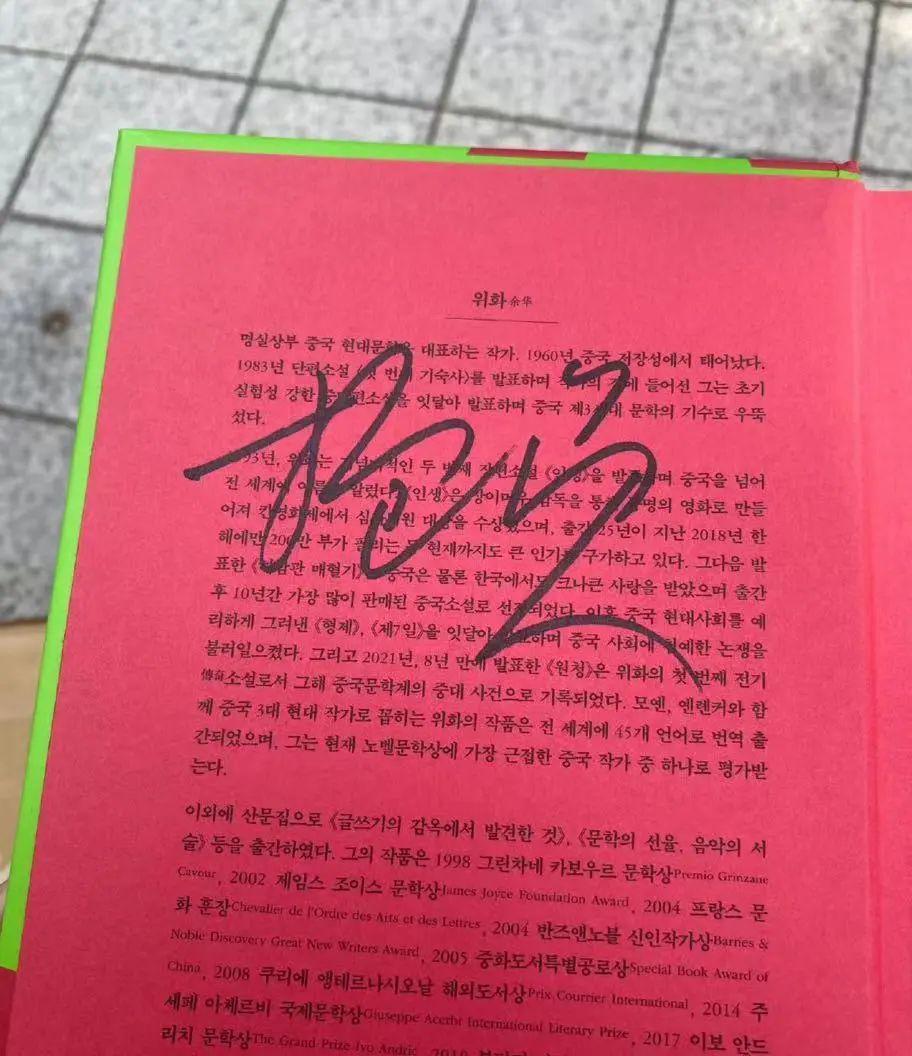 위화余华
명실상부 중국 현대문학을 대표하는 작가. 1960년 중국 저장성에서 태어났다.
1983년 단편소설 〈첫 번째 기숙사〉를 발표하며 작가의 길에 들어선 그는 초기
실험성 강한 중단편소설을 잇달아 발표하며 중국 제3세대 문학의 기수로 우뚝
섰다.
두 번째 장편소설 《인생》을 중국을 넘어
전 세계에 이름을 알렸다. 《인생》은 장이머우 감독을 통해 동명의 영화로 만들
어져 칸영화제에서 심사위원 대상을 수상했으며, 출간 25년이 지난 2018년 한
해에만 200만 부가 팔리는 등 현재까지도 큰 인기를 구가하고 있다. 그다음 발
표한 《허삼관 매혈기》 중국은 물론 한국에서도 크나큰 사랑을 받았으며 출간
후 10년간 가장 많이 판매된 중국소설로 선정되었다. 이후 중국 현대사회를 예
리하게 그려낸 《형제》, 《제7일》을 잇달아 발표하며 중국 사회에 첨예한 논쟁을
불러일으켰다. 그리고 2021년, 8년 만에 발표한 《원청》은 위화의 첫 번째 전기
傳奇소설로서 그해 중국문학계의 중대 사전으로 기록되었다. 모옌, 옌롄커와 함
께 중국 3대 현대 작가로 꼽히는 위화의 작품은 전 세계에 45개 언어로 번역 출
간되었으며, 그는 현재 노벨문학상에 가장 근접한 중국 작가 중 하나로 평가받
는다.
이외에 산문집으로 《글쓰기의 감옥에서 발견한 것》, 《문학의 선율, 음악의 서
술》 등을 출간하였다. 그의 작품은 1998 그린차네 카보우르 문학상Premio Grinzane
Cavour, 2002 제임스 조이스 문학상James Joyce Foundation Award, 2004 프랑스 문
화 훈장Chevalier de l'Ordre des Arts et des Lettres, 2004 반즈앤노블 신인작가상Barnes &
Noble Discovery Great New Writers Award, 2005 중화도서특별공로상Special Book Award of
China, 2008 쿠리에 앵테르나시오날 해외도서상Prix Courrier International, 2014 주
세페 아체르비 국제문학상Giuseppe Acerbi International Literary Prize, 2017 이보 안드
리치 문학상The Grand Prize Ivo Andric